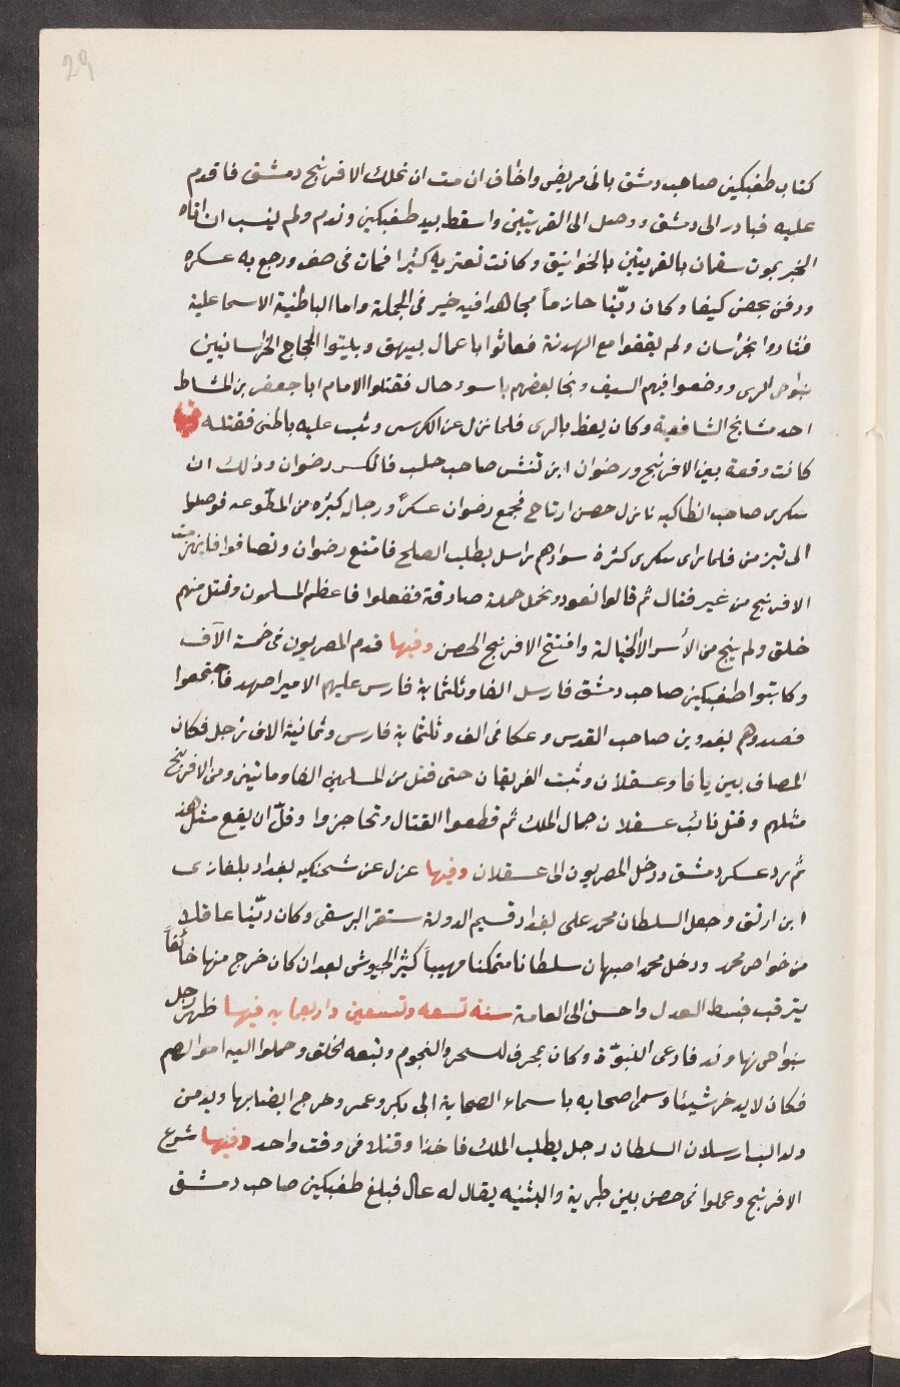 29
كتاب طغتكين صاحب دمشق بانى مريض واخاف ان مت ان تملك الافرنج دمشق فاقدم
عليه فبادر الى دمشق ووصل الى القريتين واسقط بيد طغتكين وندم ولم ينسب ان اتاه
الخبر بموت سقمان بالقريتين بالخوانيق وكانت تعتريه كثيرا فمات فى صفر ورجع به عسكره
ودفن بحصن كيفا وكان ديّنا حازماً مجاهدا فيه خير فى الجملة واما الباطنية الاسماعلية
فثاروا بخرسان ولم يقفوا مع الهدنة فعاثوا باعمال بيهق وبليتوا الحجاج الخراسانيين
بنواحى الرى ووضعوا فيهم السيف ونجا بعضهم باسوء حال فقتلوا الامام ابا جعفر بن المشاط
احد مشايخ الشافعية وكان يعظ بالرى فلما نزل عن الكرسى وثب عليه باطنى فقتله فيها
كانت وقعة بين الافرنج ورضوان ابن تتش صاحب حلب فانكسر رضوان وذلك ان
سكرى صاحب انطاكيه نازل حصن ارتاح فجمع رضوان عسكرً ورجاله كثيره من المطوعه فوصلوا
الى تبزين فلما راى سكرى كثرة سوادهم راسل بطلب الصلح فامتنع رضوان وتصافوا فانهزمت
الافرنج من غير قتال ثم قالوا نعود ونحمل حملة صادقة ففعلوا فاعظم المسلمون وقتل منهم
خلق ولم ينج من الأسر الا الخيالة وافتتح الافرنج الحصن وفيها قدم المصريون فى خمسة الآف
وكاتبوا طغتكين صاحب دمشق فارسل الفا وثلثماية فارس عليهم الامير اصهبد فاجتمعوا
فصدوهم بغدوين صاحب القدس وعكا فى الف وثلثماية فارس وثمانية الاف رجل فكان
المصاف بين يافا وعسقلان وثبت الفريقان حتى قتل من المسلمين الفا ومائتين ومن الافرنج
مثلهم وقتل نائب عسقلان جمال الملك ثم قطعوا القتال وتحاجزوا وقلّ ان يقع مثل هذ
ثم رد عسكر دمشق ودخل المصريون الى عسقلان وفيها عزل عن شحنكيه بغداد بلغازى
ابن ارتق وجعل السلطان محمد على بغداد قسيم الدولة سنقر البرسقى وكان ديّنا عاقلا
من خواص محمد ودخل محمد اصبهان سلطانا متمكنا مهيباً كثير الجيوش بعد ان كان خرج منها خائفاً
يترقب فبسط العدل واحسن الى العامة سنة تسعه وتسعين واربعمايه فيها ظهر رجل
بنواحى نهاوند فادعى النبوّة وكان يمخرق للسحر والنجوم وتبعه الخلق وحملوا اليه اموالهم
فكان لا يدخر شيئا وسمى اصحابه باسماء الصحابة ابى بكر وعمر وخرج ايضا بها ويد من
ولد الب ارسلان السلطان رجل يطلب الملك فاخذا وقتلا فى وقت واحد وفيها شرع
الافرنج وعملوا فى حصن بين طبرية والبثنيه يقال له عال فبلغ طغتكين صاحب دمشق